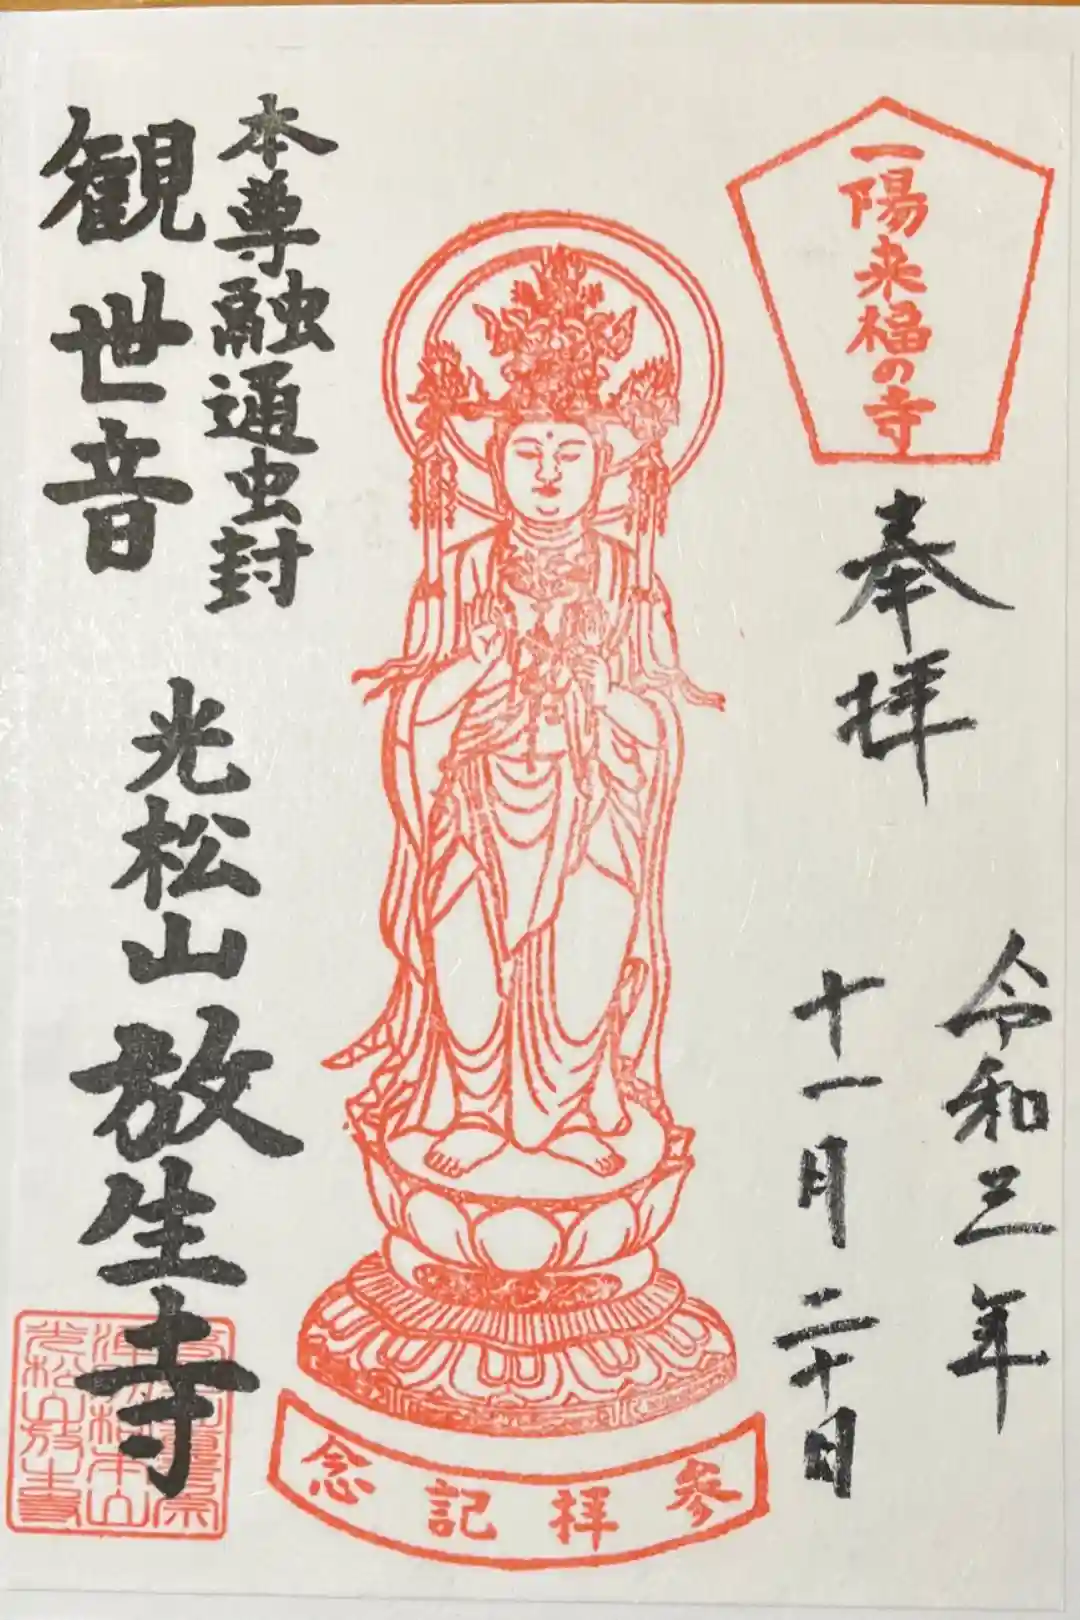 一陽来福の寺
奉拝
令和三年
十一月二十日
参拝記念
本尊融通虫封
観世音
光松山放生寺
光松山放生寺